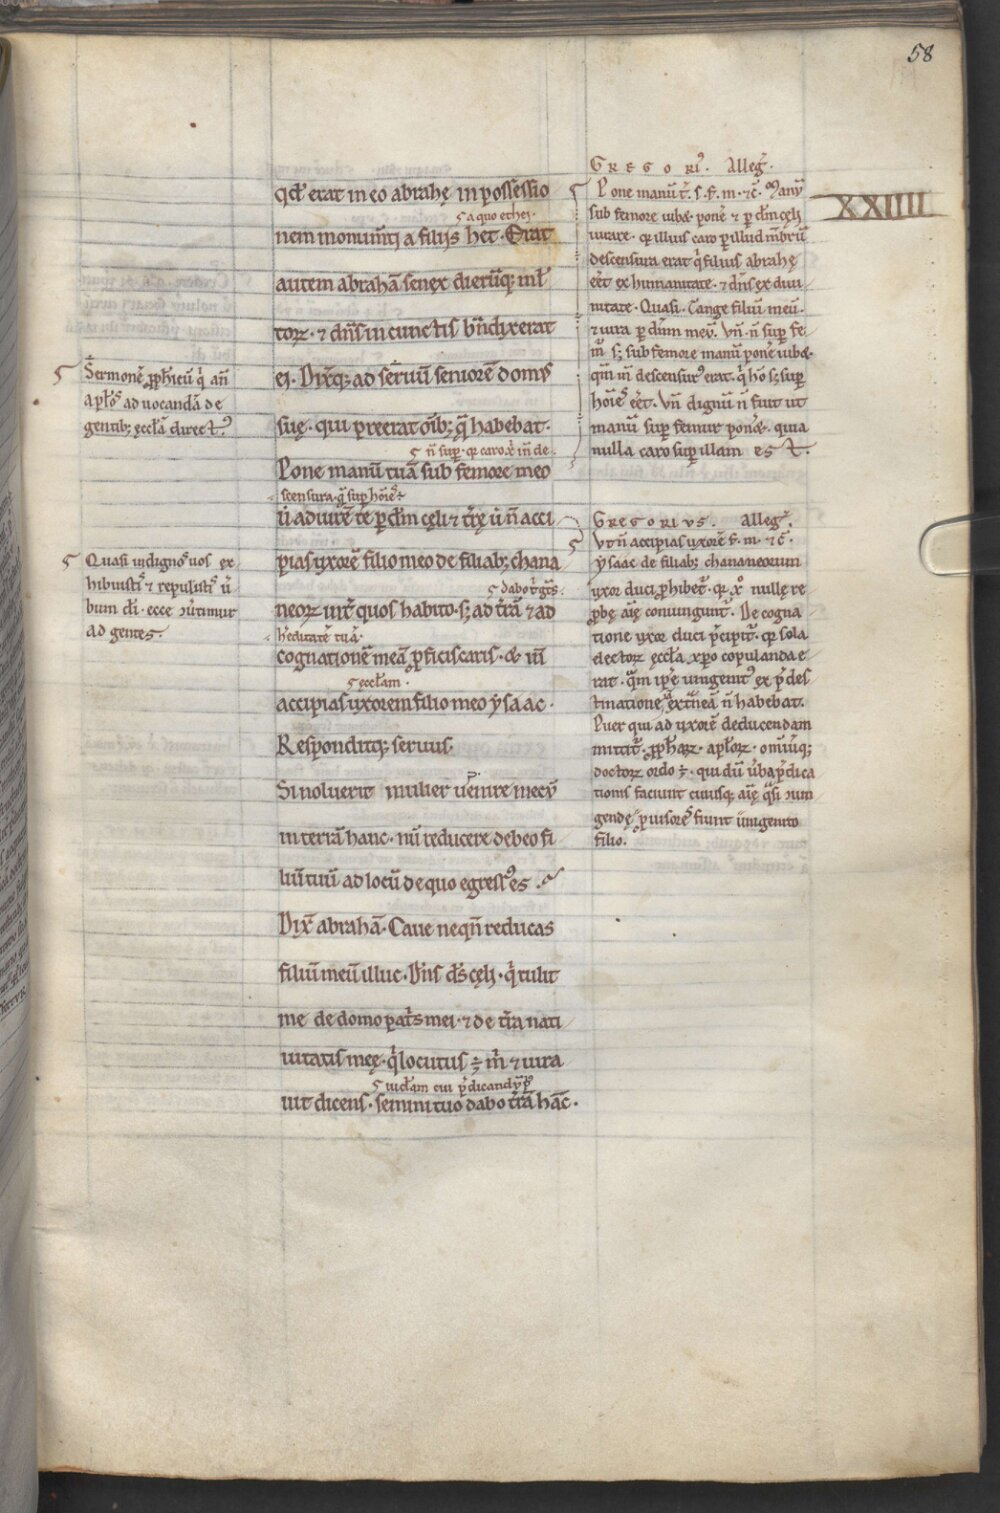 58
XXIIII
qd̄ erat in eo abrahę in possessio
ꝯ a quo ethei.
nem monum̄ti a filijs het. Erat
autem abrahā senex dierūq; ml̄
torꝝ. ⁊ dn̄s in cunctis bn̄dixerat
ei. Dixitq; ad seruū seniorē domꝰ
suę. qui preerat om̄ib; q̄ habebat.
n̄ sup. qr caro xp̄i in de
Pone manū tuā sub femore meo
scensura. q̄ sup hoīēs
ū adiurē te p dm̄ cęli ⁊ t̄rę ū n̄ acci
pias uxorē filio meo de filiab; chana
dabo t' gn̄s.
neorꝝ int̄ quos habito. s; ad t̄rā ⁊ ad
h'editatē tuā.
cognationē meā ꝓficiscaris. & in̄
ęccl̄am.
accipias uxorem filio meo ysaac.
Responditq; seruus.
Si noluerit mulier uenire mecū
in terrā hanc. nū reducere debeo fi
liū tuū ad locū de quo egressꝰ es.
Dix̄ abrahā. Caue neqn̄ reducas
filiū meū illuc. Dn̄s ds̄ cęli. q̇ tulit
me de domo pat̄s mei. ⁊ de t̄ra nati
uitatis meę. q̇ locutus ÷ m̄ ⁊ iura
p̄dicandū
uit dicens. semini tuo dabo t̄rā hāc.
Sermonē ꝓph̄icū q̇ añ
apl̄os ad uocandā de
gentib; ęccl̄a direct̄.
Quasi indignos uos ex
hibuistis ⁊ repulistis ū
bum di. ecce ꝯūtimur
ad gentes.
GREGORIꝰ. Alleg̃.
Pone manū t̄. s. f. m. ⁊c̄. Manū
sub femore iub& ponē ⁊ p dm̄ cęli
iurare. qr illius caro p illud m̄brū
descensura erat q̇ filius abrahę
eēt ex humanitate. ⁊ dn̄s ex diui
nitate. Quasi. Tange filiū meū.
⁊ iura p dm̄ meū. Vn̄. n̄ sup fe
m̄ s; sub femore manū ponē iub&.
qm̄ in̄ descensurꝰ erat. q̇ hō s; sup
hoīēs eēt. Vn̄ dignū n̄ fuit ut
manū sup femur pon&. quia
nulla caro sup illam est.
GREGORIVS. Alleg̃.
Vt n̄ accipias uxorē f. m. ⁊c̄.
ysaac de filiab; chananeorum
uxor duci ꝓhibet̄. qr xp̄o nullę re
ꝓbę aīę coniungunt̄. De cogna
tione uxor duci p̄cipit̄. qr sola
electorꝝ ęccl̄a xp̄o copulanda e
rat. q̄m ip̄e unigenitꝰ ex p̄des
tinatione ext̄neā n̄ habebat.
Puer qui ad uxorē deducendam
mittit̄. ꝓph̄arꝝ. apl̄orꝝ. omniūq;
doctorꝝ ordo ÷. qui dū ūba p̄dica
tionis faciunt cuiusq; aīę q̄si iun
gendę ꝓuisores fiunt unigenito
filio.